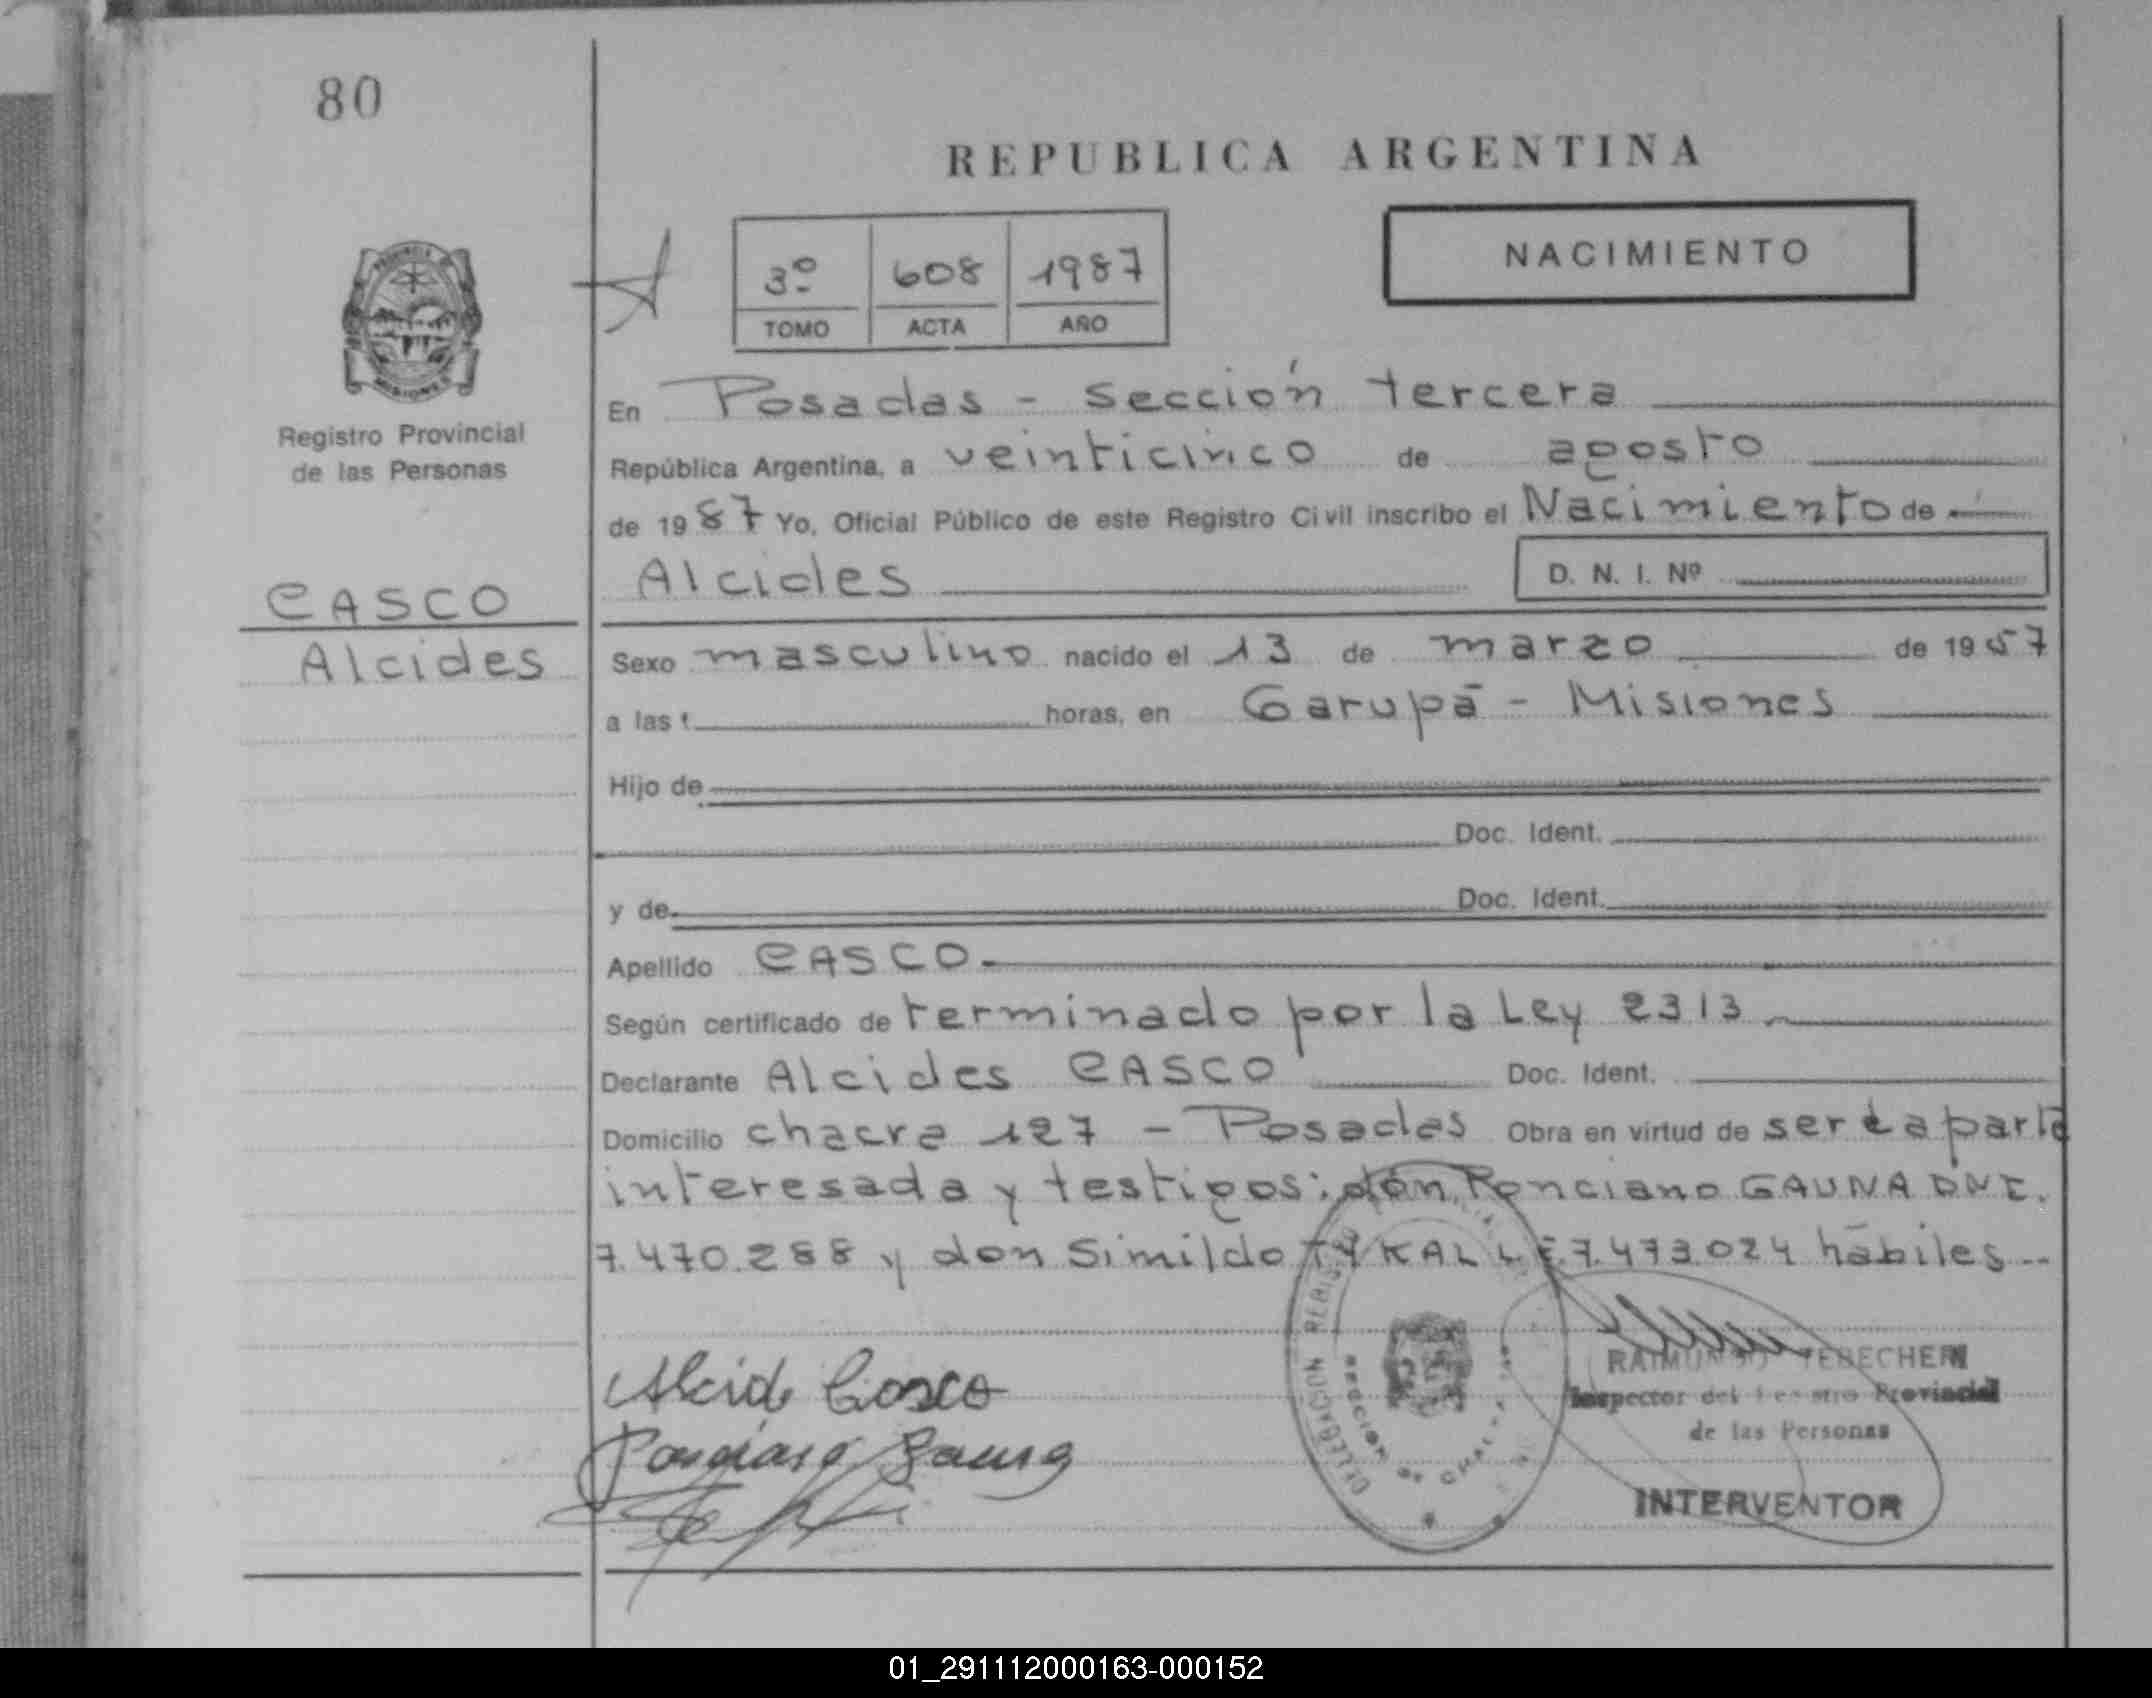 80
REPUBLICA ARGENTINA
3º 608 1987
TOMO ACTA AÑO
NACIMIENTO
Registro Provincial
de las Personas
CASCO
Alcides
En Posadas - sección tercera
República Argentina, a veinticinco de agosto
de 1987 Yo, Oficial Público de este Registro Civil inscribo el Nacimiento de
Alcides D. N. I. Nº
Sexo masculino nacido el 13 de marzo de 1957
a las horas, en Garupá - Misiones
Hijo de
Doc. Ident.
y de Doc. Ident.
Apellido CASCO
Según certificado de terminado por la Ley 2313
Declarante Alcides CASCO Doc. Ident.
Domicilio chacra 127 - Posadas Obra en virtud de ser la parte
interesada y testigos: don Ponciano GAUNA DNI.
7.470.288 y don Simildo TYKAL L.E 7.473.024 hábiles --
Alcide Casco
Ponciano Gauna
RAIMUNDO
Inspector del Registro Provincial
de las Personas
INTERVENTOR
01_291112000163-000152